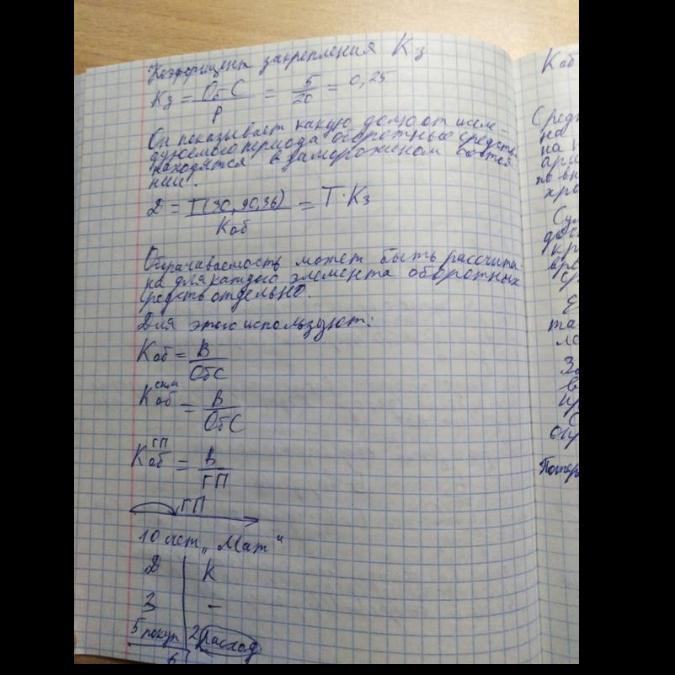 Коэффициент закрепления Кз
Кз = ОбС / Р = 5 / 20 = 0,25
Он показывает какую долю от иссле-
дуемого периода оборотные средства
находятся в замороженом состоя
нии.
Д = Т(30, 90, 36) / Коб = Т · Кз
Оборачиваемость может быть рассчита
на для каждого элемента оборотных
средств отдельно.
Для этого используют:
Коб = В / ОбС
Коб = В / ОбС
Коб ГП = В / ГП
ГП
10 счет „Мат"
Д | К
3 | -
5 покуп | 2 Расход
6
Коб
Средн
на
на н
Су
кр
ср
та
За
в
огр
Потер